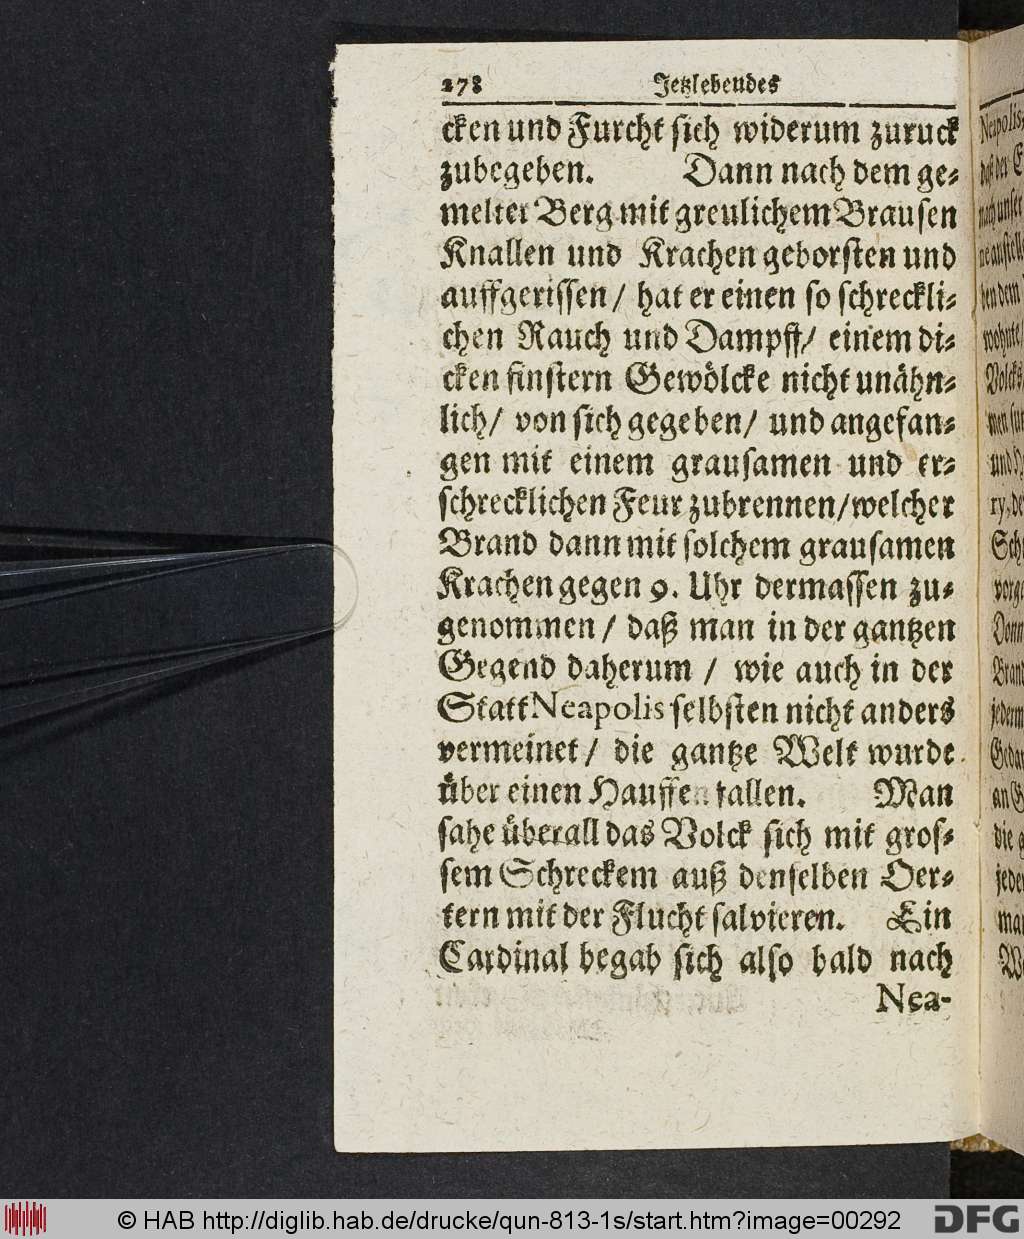 278 Jetzlebendes
cken und Furcht sich widerum zuruck
zubegeben. Dann nach dem ge⸗
melter Berg mit greulichem Brausen
Knallen und Krachen geborsten und
auffgerissen / hat er einen so schreckli⸗
chen Rauch und Dampff / einem di⸗
cken finstern Gewölcke nicht unähn⸗
lich / von sich gegeben / und angefan⸗
gen mit einem grausamen und er⸗
schrecklichen Feur zubrennen / welcher
Brand dann mit solchem grausamen
Krachen gegen 9. Uhr dermassen zu⸗
genommen / daß man in der gantzen
Gegend daherum / wie auch in der
Statt Neapolis selbsten nicht anders
vermeinet / die gantze Welt wurde
über einen Hauffen fallen. Man
sahe überall das Volck sich mit gros⸗
sem Schreckem auß denselben Oer⸗
tern mit der Flucht salvieren. Ein
Cardinal begab sich also bald nach
Nea-
© HAB http://diglib.hab.de/drucke/qun-813-1s/start.htm?image=00292
DFG